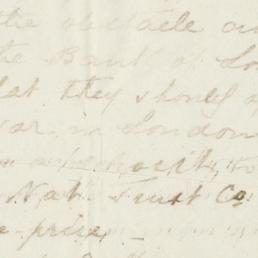 the obstacle an
the Bank of Lo
hat they should a
war in London
a deposit, to
Nat Trust Co
e price -